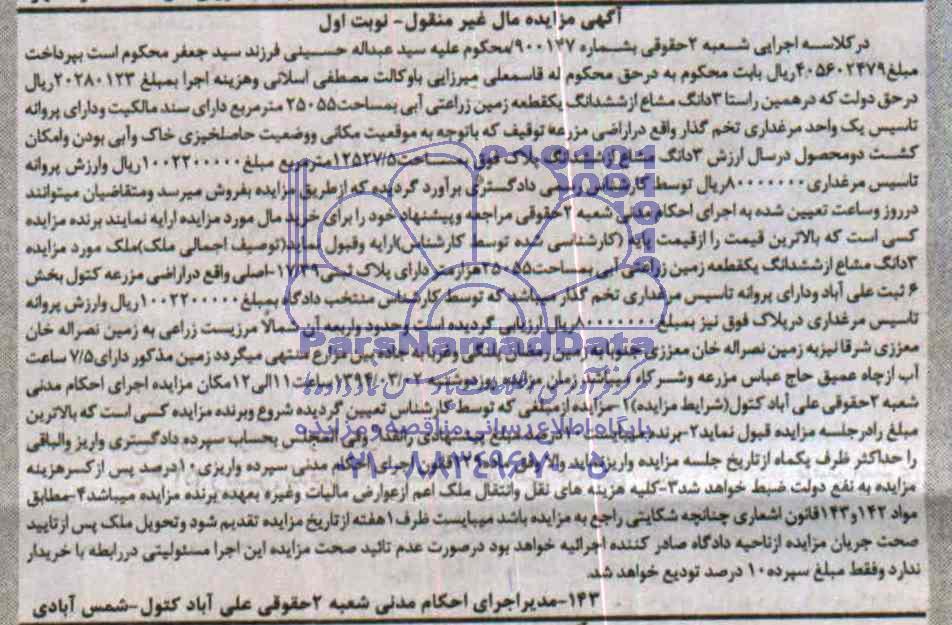 آگهی مزایده مال غیر منقول- نوبت اول
درکلاسه اجرایی شعبه ۲حقوقی بشماره ۹۰۰۱۴۷/محکوم علیه سید عبداله حسینی فرزند سید جعفر محکوم است بپرداخت
مبلغ۴۰۵۶۰۲۴۷۹ریال بابت محکوم به درحق محکوم له قاسمعلی میرزایی باوکالت مصطفی اسلانی وهزینه اجرا بمبلغ ۲۰۲۸۰۱۲۳ریال
درحق دولت که درهمین راستا ۳دانگ مشاع ازششدانگ یکقطعه زمین زراعتی آبی بمساحت۲۵۰۵۵ مترمربع دارای سند مالکیت ودارای پروانه
تاسیس یک واحد مرغداری تخم گذار واقع دراراضی مزرعه توقیف که باتوجه به موقعیت مکانی ووضعیت حاصلخیزی خاک وآبی بودن وامکان
کشت دومحصول درسال ارزش ۳دانگ مشاع ازششدانگ پلاک فوق بمساحت۱۲۵۲۷/۵مترمربع مبلغ۱۰۰۲۲۰۰۰۰۰ریال وارزش پروانه
تاسیس مرغداری۸۰۰۰۰۰۰۰ریال توسط کارشناس رسمی دادگستری برآورد گردیده که ازطریق مزایده بفروش میرسد ومتقاضیان میتوانند
درروز وساعت تعیین شده به اجرای احکام مدنی شعبه ۲حقوقی مراجعه وپیشنهاد خود را برای خرید مال مورد مزایده ارایه نمایند برنده مزایده
کسی است که بالاترین قیمت را ازقیمت پایه (کارشناسی شده توسط کارشناس)ارایه وقبول نماید(توصیف اجمالی ملک)ملک مورد مزایده
۳دانگ مشاع ازششدانگ یکقطعه زمین زراعتی آبی بمساحت۲۵۰۵۵هزارمتر دارای پلاک ثبتی ۱۷/۳۹-اصلی واقع دراراضی مزرعه کتول بخش
۶ ثبت علی آباد ودارای پروانه تاسیس مرغداری تخم گذار میباشد که توسط کارشناس منتخب دادگاه بمبلغ ۱۰۰۲۲۰۰۰۰۰ریال وارزش پروانه
تاسیس مرغداری درپلاک فوق نیز بمبلغ۸۰۰۰۰۰۰۰ریال ارزیابی گردیده است وحدود واربعه آن شمالا مرزیست زراعی به زمین نصراله خان
معززی شرقا نیزبه زمین نصراله خان معززی جنوبا به زمین رمضان پلنگی وغربا به جاده بین مزارع منتهی میگردد زمین مذکور دارای۷/۵ ساعت
آب ازچاه عمیق حاج عباس مزرعه وشرکاء میباشد زمان مزایده روزدوشنبه ۱۳۹۴/۰۳/۰۲ساعت۱۱الی۱۲مکان مزایده اجرای احکام مدنی
شعبه ۲حقوقی علی آباد کتول(شرایط مزایده)۱-مزایده ازمبلغی که توسط کارشناس تعیین گردیده شروع وبرنده مزایده کسی است که بالاترین
مبلغ رادرجلسه مزایده قبول نماید۲-برنده میبایست ۱۰درصد مبلغ پیشنهادی رانقدا وفی المجلس بحساب سپرده دادگستری واریز والباقی
را حداکثر ظرف یکماه ازتاریخ جلسه مزایده واریزنماید والا وفق ماده قانون اجرای احکام مدنی سپرده واریزی۱۰درصد پس ازکسرهزینه
مزایده به نفع دولت ضبط خواهد شد۳-کلیه هزینه های نقل وانتقال ملک اعم ازعوارض مالیات وغیره بعهده برنده مزایده میباشد۴-مطابق
مواد ۱۴۲و۱۴۳قانون اشعاری چنانچه شکایتی راجع به مزایده باشد میبایست ظرف۱هفته ازتاریخ مزایده تقدیم شود وتحویل ملک پس ازتایید
صحت جریان مزایده ازناحیه دادگاه صادر کننده اجرائیه خواهد بود درصورت عدم تائید صحت مزایده این اجرا مسئولیتی دررابطه با خریدار
ندارد وفقط مبلغ سپرده۱۰ درصد تودیع خواهد شد.
۱۴۳-مدیراجرای احکام مدنی شعبه ۲حقوقی علی آباد کتول-شمس آبادی
ParsNamadData
پایگاه اطلاع رسانی مناقصه و مزایده
۰۲۱-۸۸۳۴۹۶۷۰-۵